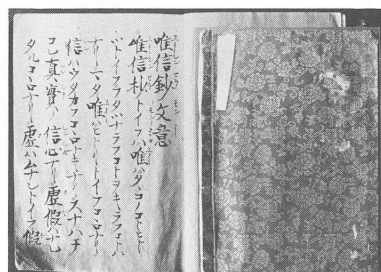 唯信鈔文意
唯信抄トイフハ唯ハタヽコノコトヒト
ツトイフフタツナラフコトヲキラフコトハ
ナリマタ唯ハヒトリトイフコヽロナリ
信ハウタカフコヽロナキナリスナハチ
コレ真實ノ信心ナリ虚假ハナレ
タルコヽロナリ虚ハムナシトイフ假